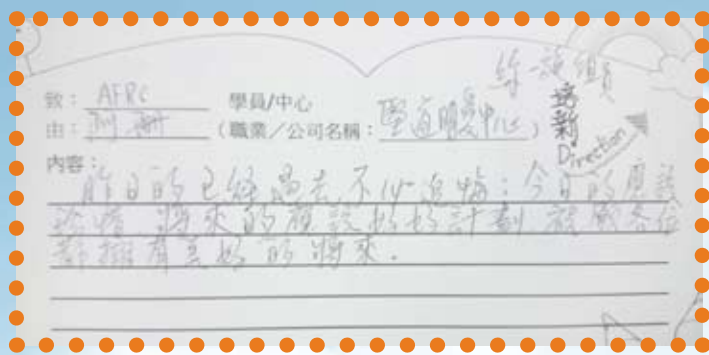 致： AFRC 學員/中心
由： 阿珊 （職業／公司名稱： 堅道明愛中心 ）
培新 Direction
內容：
昨日的已經過去不必追悔；今日的應該
珍惜 將來的應該好好計劃 祝願各位
都擁有美好的將來.